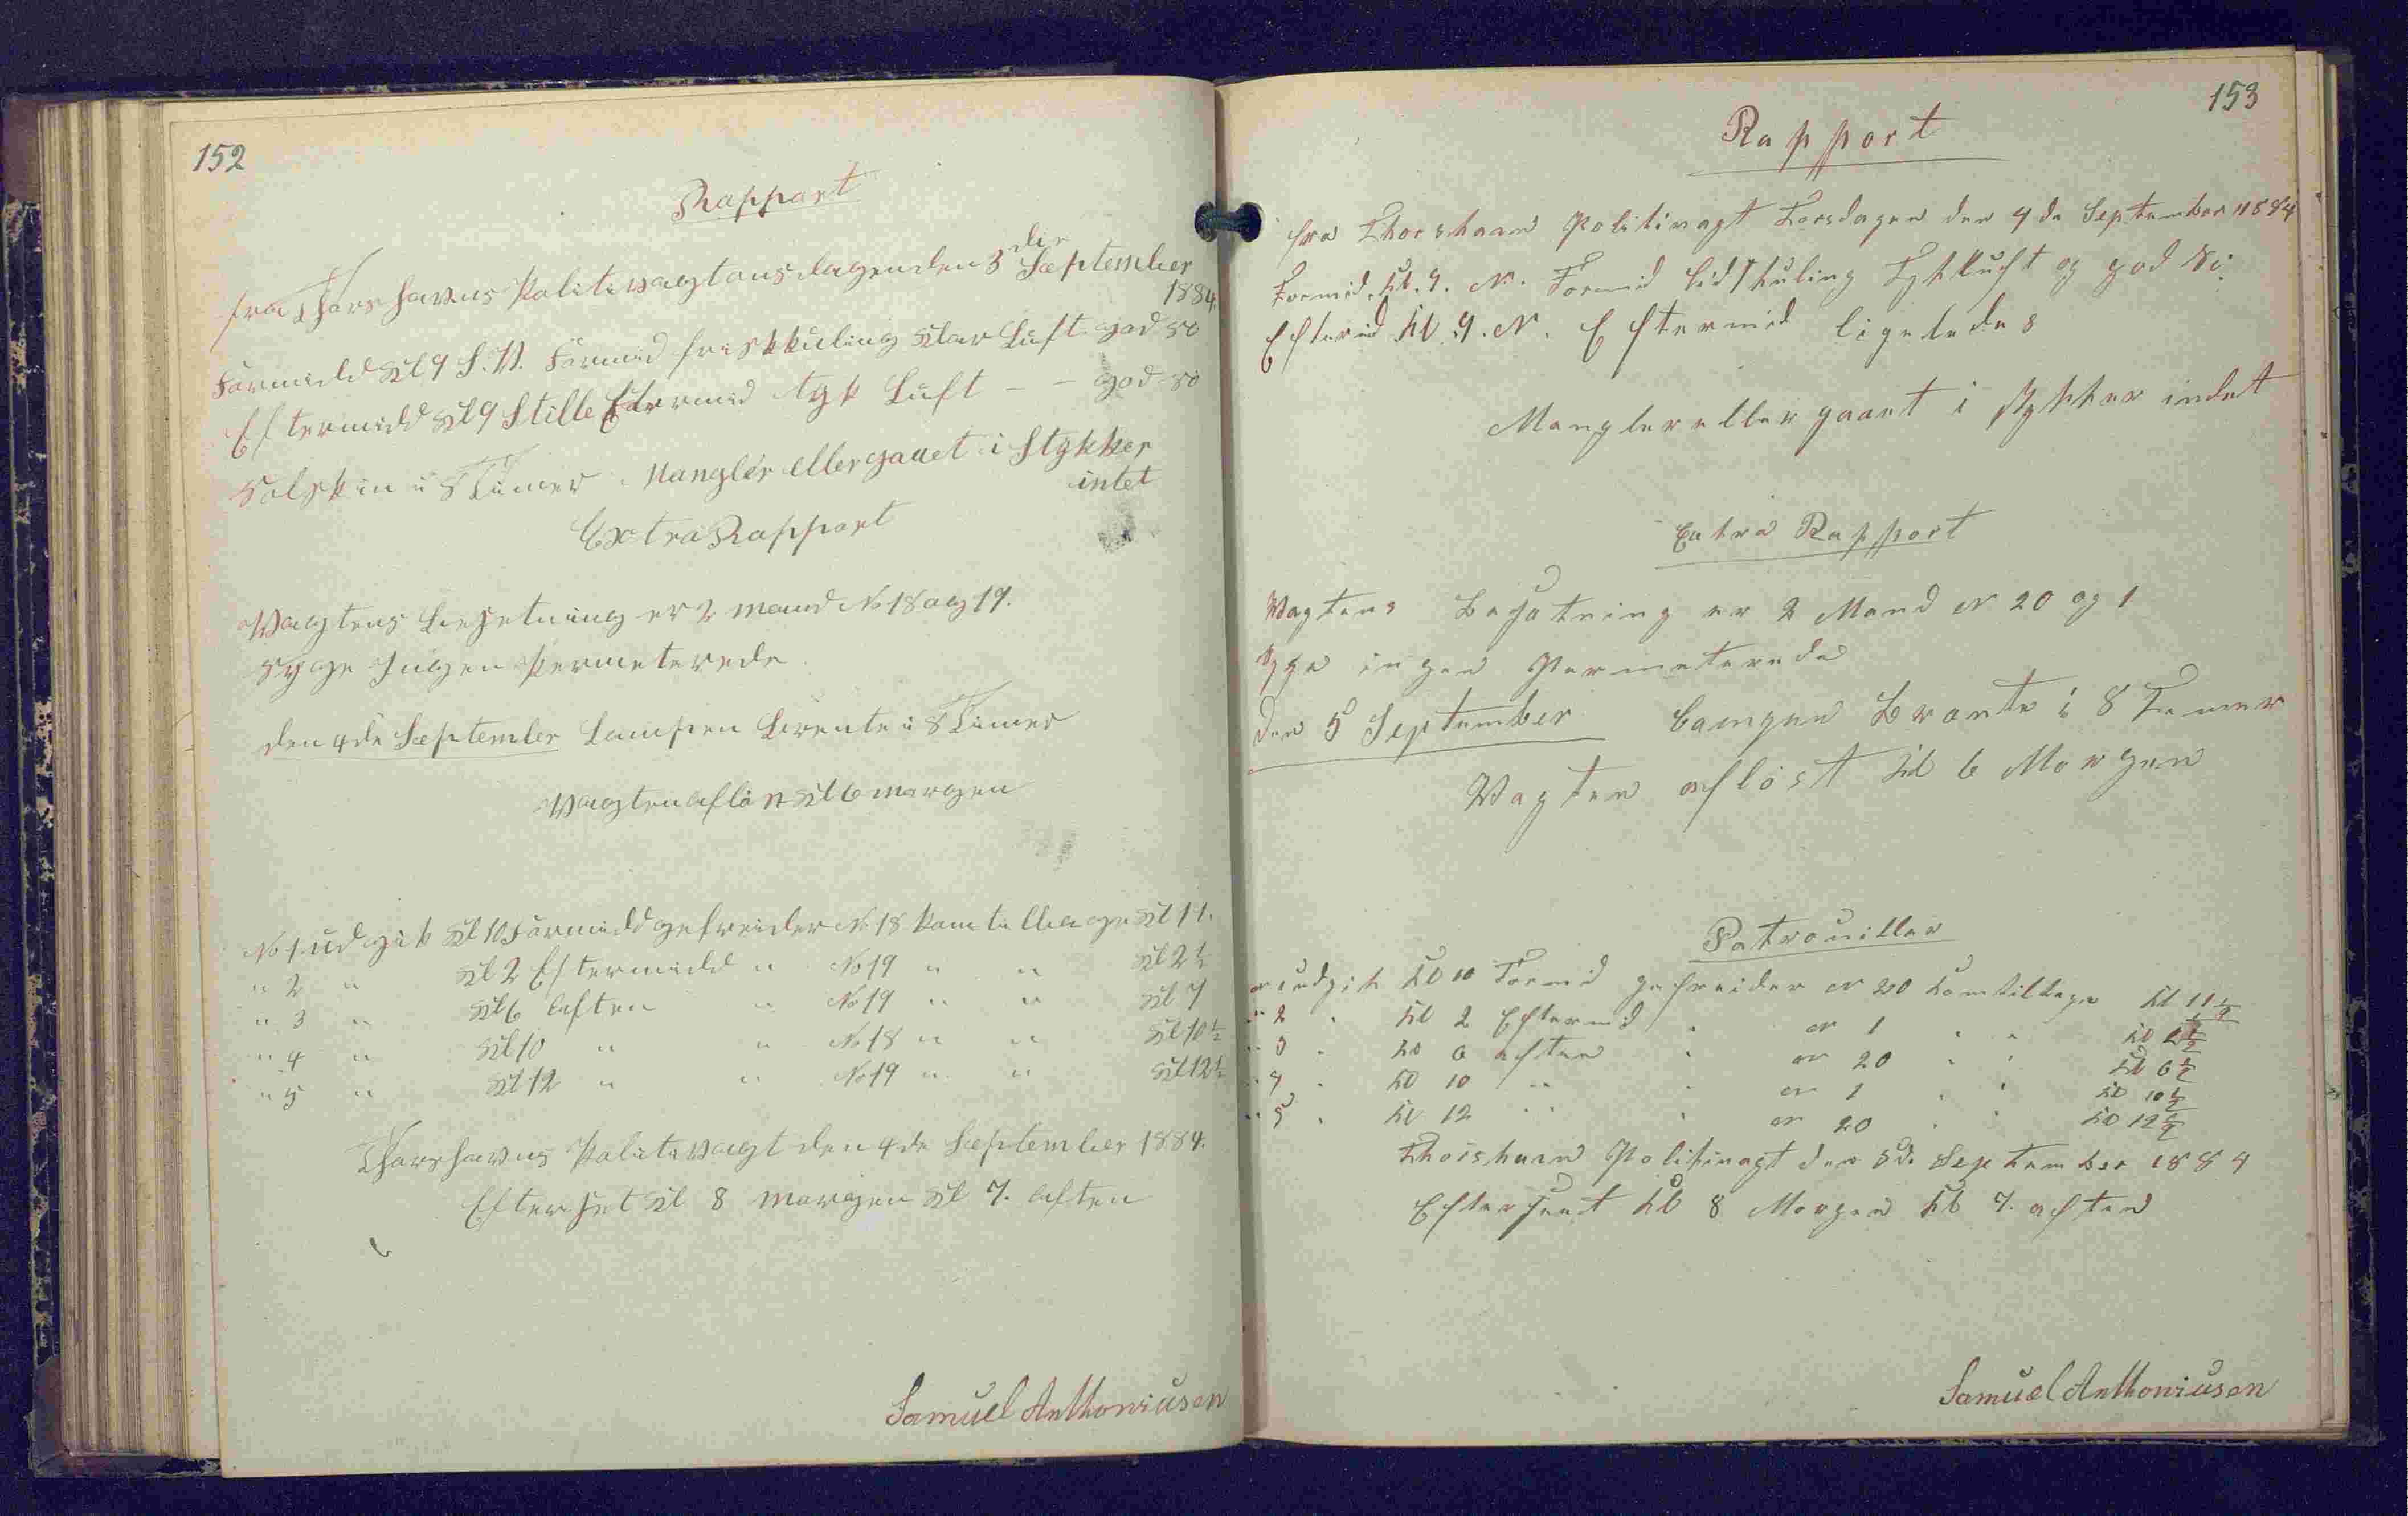 152
Rapport
fra Thorshavns Politivagt onsdagen den 3 die September
1884
Formidd Kl 9 S.V. Formid friskkuling Klar Luft god sö
Eftermidd Kl 9 Stille Eftermid tyk Luft - - god sö
Solskin i 8 Timer. Mangler eller gaaet i Stykker
intet
Extra Rapport
Vagtens besetning er 2 mand No 18 og 19.
Syge Ingen Permeterede
den 4de September Lampen brente i 8 Timer
Vagten aflöst Kl 6 morgen
No 1 udgik Kl 10 Formidd gefreider No 18 kom tilbage Kl 11.
" 2 " Kl 2 Eftermidd " No 19 " " Kl 2½
" 3 " Kl 6 aften " No 19 " " Kl 7
" 4 " Kl 10 " " No 18 " " Kl 10½
" 5 " Kl 12 " " No 19 " " Kl 12½
Thorshavns Politivagt den 4de September 1884.
Efterset Kl 8 morgen Kl 7. aften
Samuel Anthoniusen
153
Rapport
fra Thorshavn Politivagt Torsdagen den 4de September 1884
Formid. Kl. 9. N. Formid lidtkuling Tykluft og god Sö
Eftermid Kl 9. N. Eftermid ligeledes
Mangler eller gaaet i stykker indet
Extra Rapport
Vagtens Besatning er 2 Mand N 20 og 1
Syge ingen Permeterede
den 5 September Lampen Brante i 8 Temer
Vagten aflöst Kl 6 Morgen
Patrouiller
N udgik Kl 10 Formid gefreider N 20 komtilbage Kl 11½
" 2 " Kl 2 Eftermid " N 1 " " Kl 2½
" 3 " Kl 6 aften " N 20 " " Kl 6½
" 4 " Kl 10 " " N 1 " " Kl 10½
" 5 " Kl 12 " " N 20 " " Kl 12½
Thorshavn Politivagt den 5de September 1884
Efterseet Kl 8 Morgen Kl 7. aften
Samuel Anthoniusen